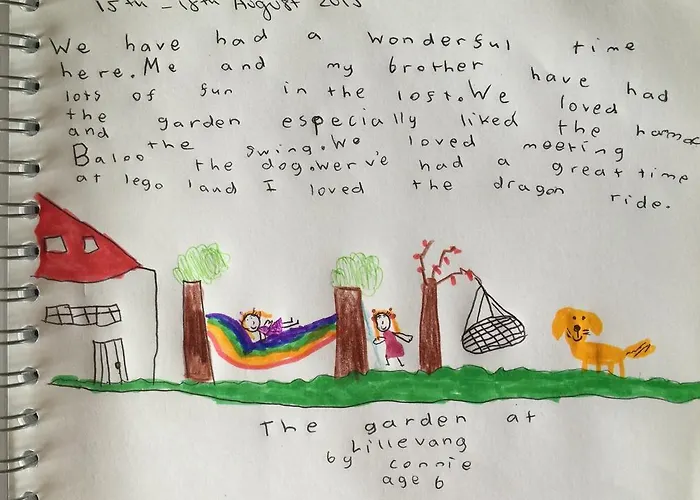 15th - 18th August 2015
We have had a wonderful time
here. Me and my brother have had
lots of fun in the lost. We loved
the garden especially liked the hamoc
and the swing. We loved meeting
Baloo the dog. Werv'e had a great time
at lego land I loved the dragon ride.
The garden at
Lillevang
by connie
age 6